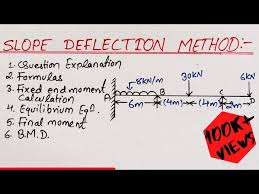 SLOPE DEFLECTION METHOD:-
1. Question Explanation
2. Formulas
3. Fixed end moment Calculation
4. Equilibrium Eqn.
5. Final moment
6. B.M.D.
8kN/m
30kN
6kN
A
B
C
D
6m
(4m)
(4m)
2m
100K+
VIEWS